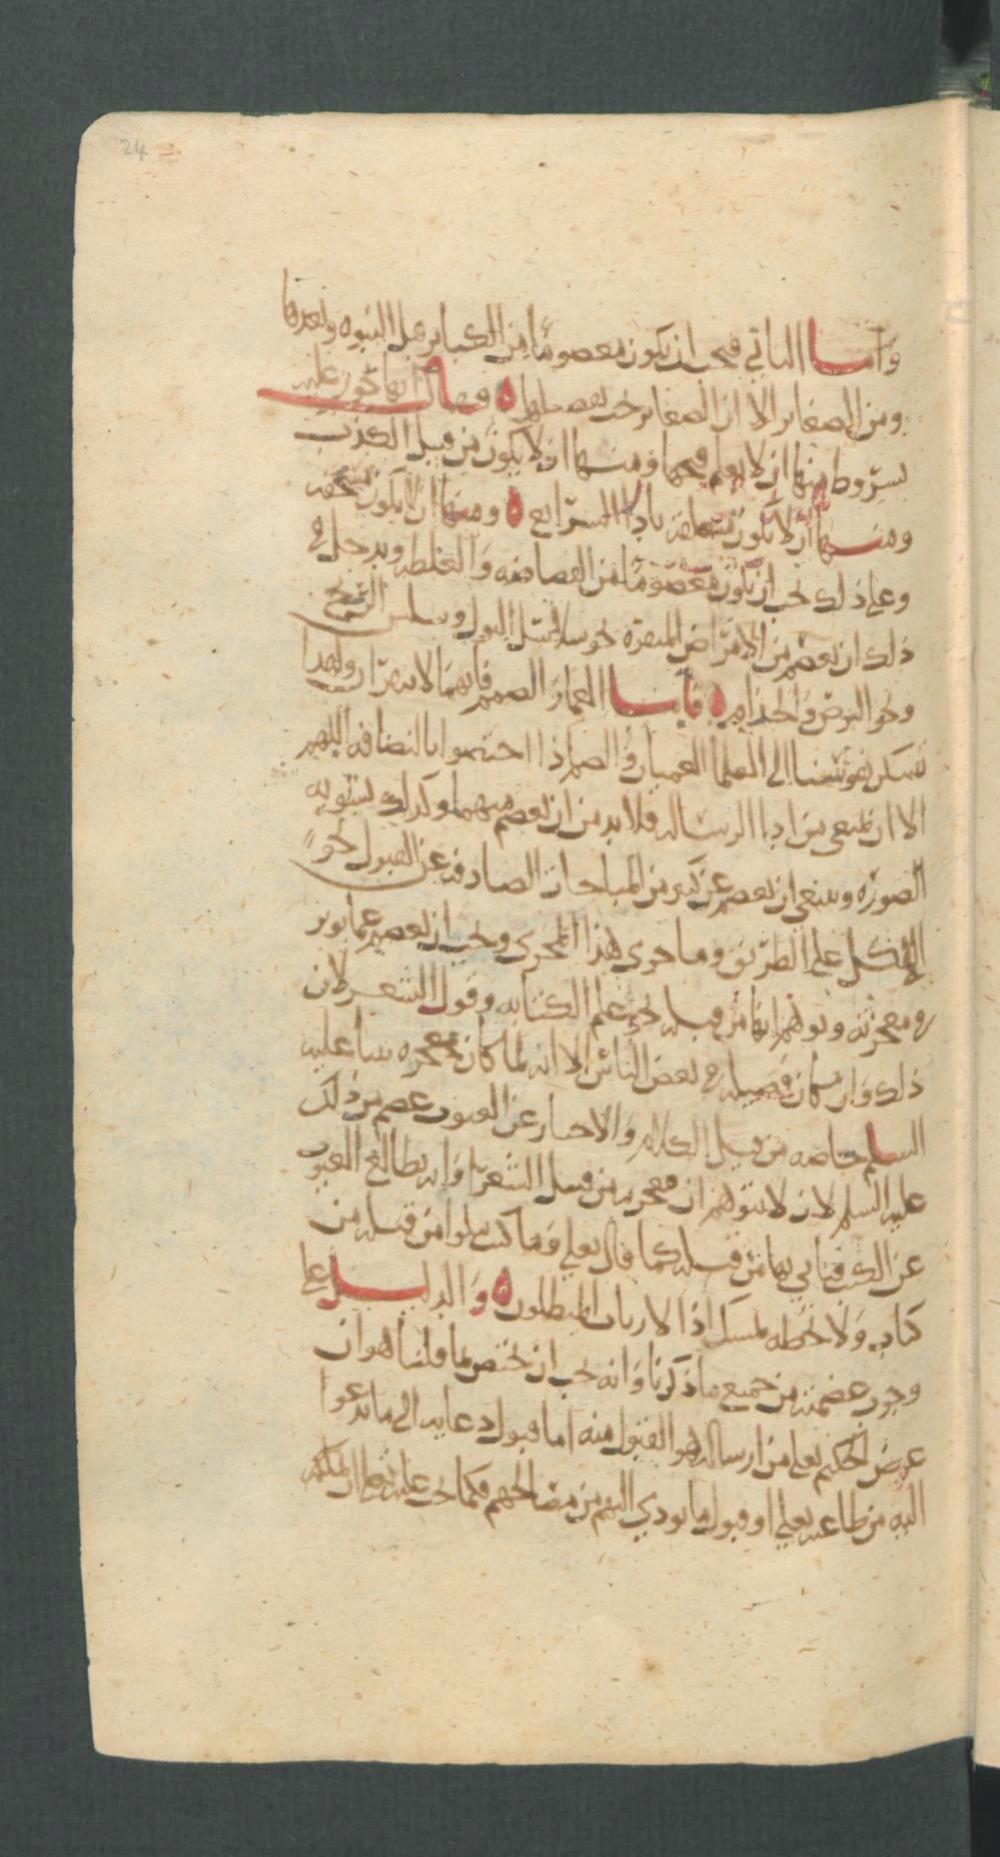 24
وأما الثاني فيجب ان يكون معصوما من الكباير قبل النبوه وبعدها
ومن الصغاير الا ان الصغاير لها تفصيل ه فيقال انها تجوز عليه
بشروط منها ان لا يعلم قبحها ومنها ان لا يكون من قبيل الكذب
ومنها ان لا يكون متعلقه باداء الشرايع ه ومنها ان لا يكون مستخفه
وعلى ذلك يجب ان يكون معصوما من الفضاضه والغلظه ويدخل في
ذلك ان يعصم من الامراض المنفره نحو سلس البول وسلس الريح
ونحو البرص والجذام ه فاما العما والصمم فانهما لا ينفران ولهذا
تسكن نفوسنا الى العلما العميان والصم اذا اختصوا بالنصافه اللهم
الا ان يمنعا من اداء الرساله فلا بد من ان يعصم منهما وكذلك تشويه
الصوره وينبغي ان يعصم عن كثير من المباحات الصارفه عن القبول نحو
الاكل على الطريق وما جرى هذا المجرى ويجب ان يعصم عما يوثر
في معجزته ويوهم انها من قبله نحو علم الكتابه وقول الشعر لان
ذلك وان كان فضيله في بعض الناس الا انه لما كان معجزه نبينا عليه
السلم خاصه من قبيل الكلام والاخبار عن الغيوب عصم من ذلك
عليه السلم لان لا يتوهم ان معجزته من قبيل الشعر وانه يطالع الغيوب
عن الكتب فياتي بها من قبله كما قال تعلى وما كنت تتلوا من قبله من
كتاب ولا تخطه بيمينك اذا لارتاب المبطلون ه والدليل على
وجوب عصمته من جميع ما ذكرنا وانه يجب ان يختص بما قلنا هو ان
غرض الحكيم تعلى من ارساله هو القبول منه اما قبول دعايه الى ما يدعوا
اليه من طاعته تعلى او قبول ما يودي اليهم من مصالحهم فكما يجب عليه تعلى ان يمكنه